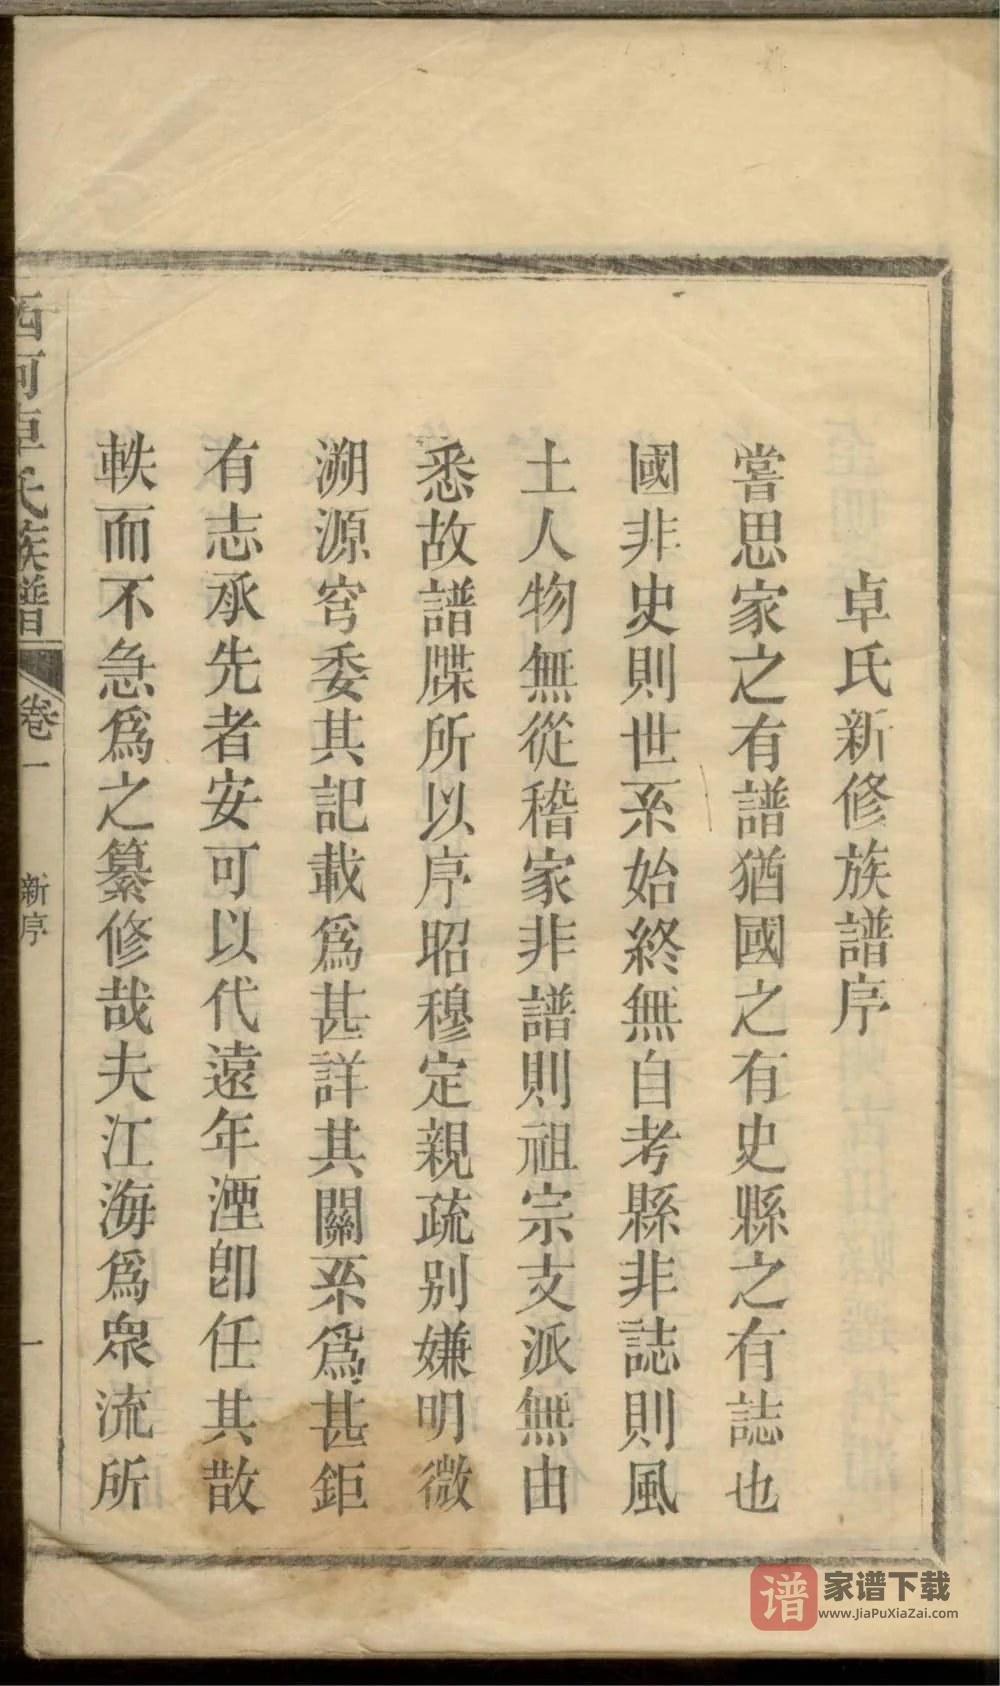 卓氏新修族譜序
嘗思家之有譜猶國之有史縣之有誌也
國非史則世系始終無自考縣非誌則風
土人物無從稽家非譜則祖宗支派無由
悉故譜牒所以序昭穆定親疏别嫌明微
溯源穷委其記載爲甚詳其關系爲甚鉅
有志承先者安可以代遠年湮卽任其散
軼而不急爲之纂修哉夫江海爲衆流所
西河卓氏族譜 卷一 新序 一
谱 家谱下载
www.JiaPuXiaZai.com